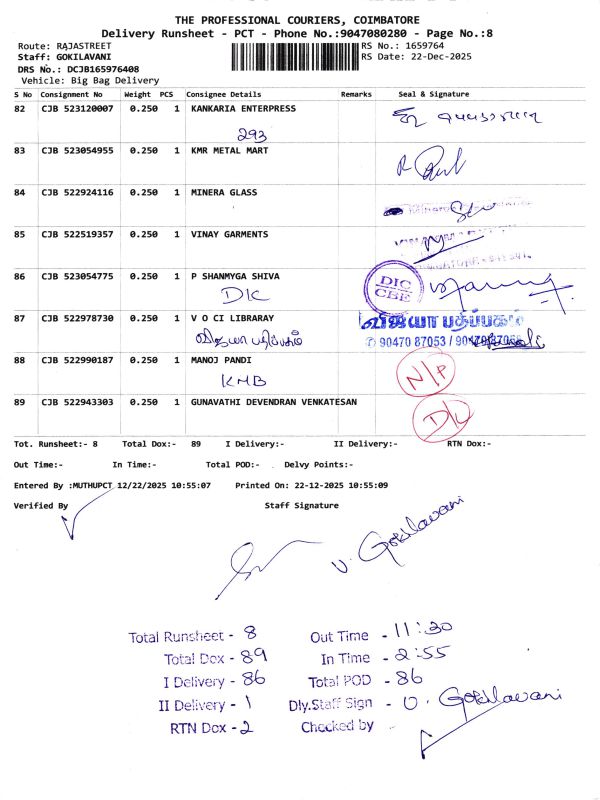 THE PROFESSIONAL COURIERS, COIMBATORE
Delivery Runsheet - PCT - Phone No.:9047080280 - Page No.:8
Route: RAJASTREET
RS No.: 1659764
Staff: GOKILAVANI
RS Date: 22-Dec-2025
DRS No.: DCJB165976408
Vehicle: Big Bag Delivery
S No Consignment No Weight PCS Consignee Details Remarks Seal & Signature
82 CJB 523120007 0.250 1 KANKARIA ENTERPRESS
293
83 CJB 523054955 0.250 1 KMR METAL MART
84 CJB 522924116 0.250 1 MINERA GLASS
85 CJB 522519357 0.250 1 VINAY GARMENTS
86 CJB 523054775 0.250 1 P SHANMYGA SHIVA
DIC
DIC
CBE
87 CJB 522978730 0.250 1 V O CI LIBRARAY
விஜயா பதிப்பகம்
விஜயா பதிப்பகம்
90470 87053 / 90470 87058
88 CJB 522990187 0.250 1 MANOJ PANDI
KMB
N/P
89 CJB 522943303 0.250 1 GUNAVATHI DEVENDRAN VENKATESAN
D/L
Tot. Runsheet:- 8 Total Dox:- 89 I Delivery:- II Delivery:- RTN Dox:-
Out Time:- In Time:- Total POD:- Delvy Points:-
Entered By :MUTHUPCT 12/22/2025 10:55:07 Printed On: 22-12-2025 10:55:09
Verified By Staff Signature
V. Gokilavani
Total Runsheet - 8 Out Time - 11:30
Total Dox - 89 In Time - 2:55
I Delivery - 86 Total POD - 86
II Delivery - 1 Dly.Staff Sign - V. Gokilavani
RTN Dox - 2 Checked by